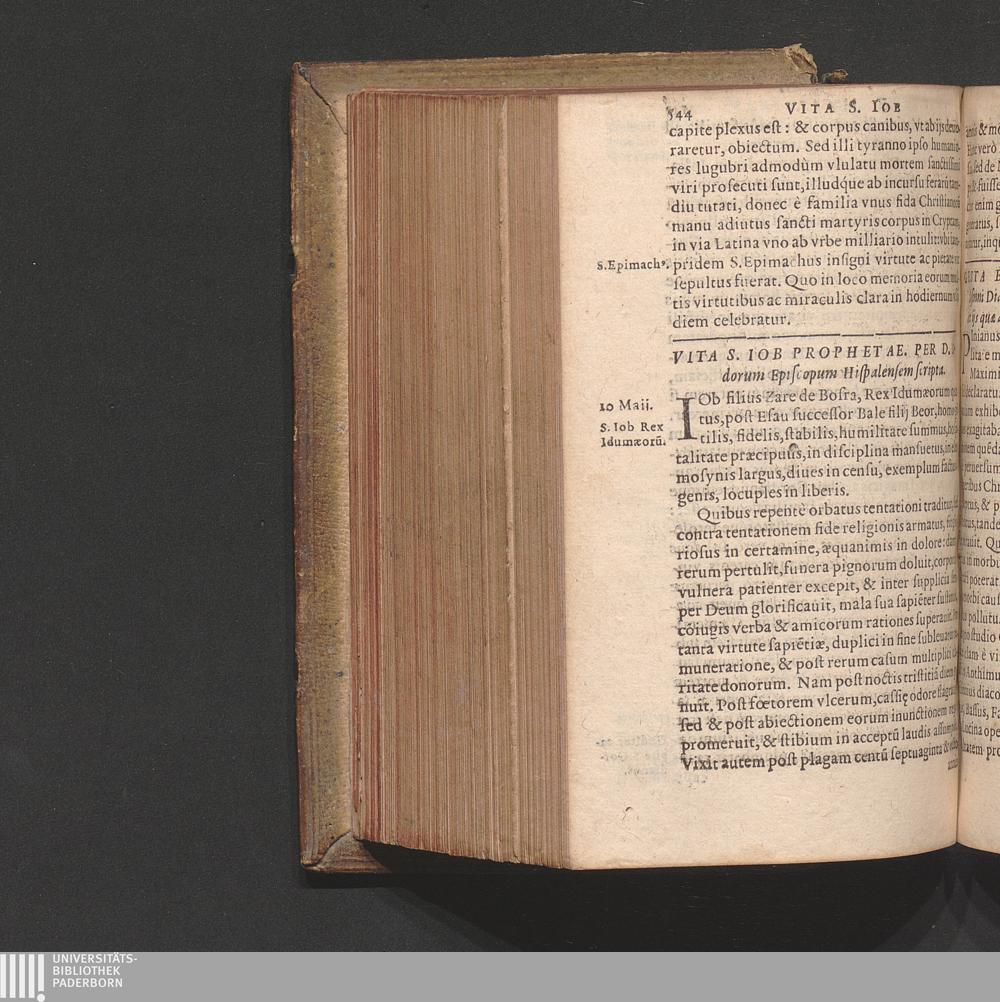 544 VITA S. IOB
capite plexus est: & corpus canibus, vt ab ijs deuo-
raretur, obiectum. Sed illi tyranno ipso humanio-
res lugubri admodùm vlulatu mortem sanctissimi
viri prosecuti sunt, illudque ab incursu ferarũ tam-
diu tutati, donec è familia vnus fida Christianorũ
manu adiutus sancti martyris corpus in Cryptam,
in via Latina vno ab vrbe milliario intulit: vbi iam-
S. Epimachꝰ. pridem S. Epimachus insigni virtute ac pietate vir
sepultus fuerat. Quo in loco memoria eorum mul-
tis virtutibus ac miraculis clara in hodiernum
diem celebratur.
VITA S. IOB PROPHETAE. PER D. I-
dorum Episcopum Hispalensem scripta.
10 Maij.
S. Iob Rex
Idumæorũ.
IOb filius Zare de Bosra, Rex Idumæorum
tus, post Esau successor Bale filij Beor, homo
tilis, fidelis, stabilis, humilitate summus,
talitate præcipuus, in disciplina mansuetus, in
mosynis largus, diues in censu, exemplum factus
genis, locuples in liberis.
Quibus repentè orbatus tentationi traditur,
contra tentationem fide religionis armatus,
riosus in certamine, æquanimis in dolore:
rerum pertulit, funera pignorum doluit, corporis
vulnera patienter excepit, & inter supplicia
per Deum glorificauit, mala sua sapiẽter
cõiugis verba & amicorum rationes superauit.
tanta virtute sapiẽtiæ, duplici in fine
muneratione, & post rerum casum multiplici
ritate donorum. Nam post noctis tristitiã diem
nuit. Post fœtorem vlcerum, cassię odore
sed & post abiectionem eorum inunctionem
promeruit, & stibium in acceptũ laudis
Vixit autem post plagam centũ septuaginta &
UNIVERSITÄTS-
BIBLIOTHEK
PADERBORN